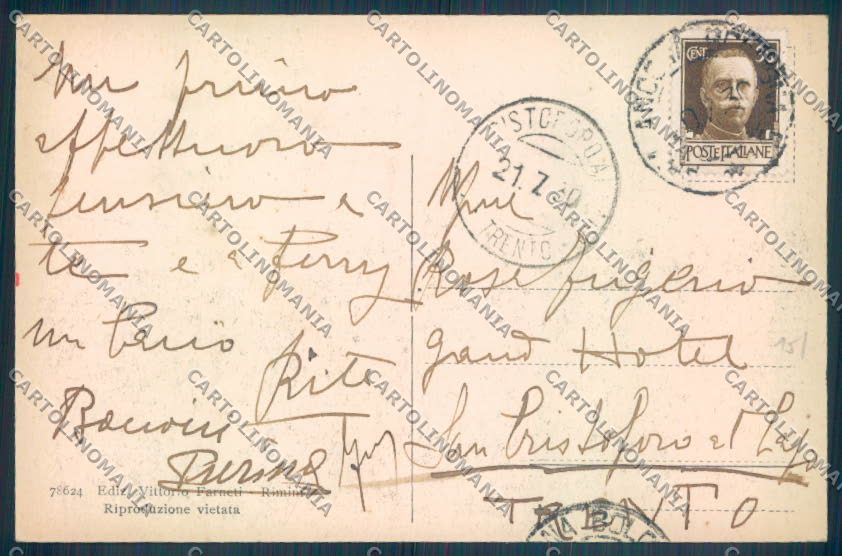 Un primo
affettuoso
pensiero a
te e a Perry
un bacio
Rita
78624 Ediz. Vittorio Farneti - Rimini
Riproduzione vietata
CENT
POSTE ITALIANE
CRISTOFORO A
21.7
TRENTO
Mme
Rose Frigerio
Grand Hotel
San Cristoforo al Lago
TRENTO
CARTOLINOMANIA